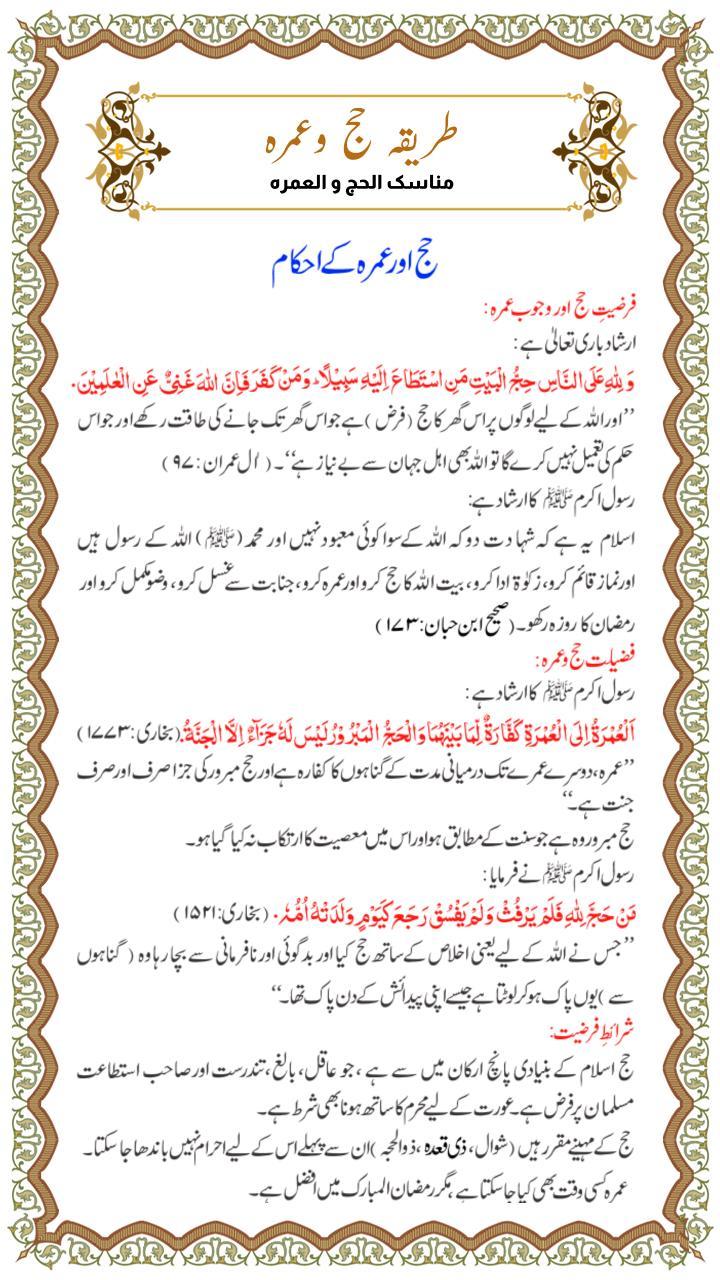 طریقہ حج وعمرہ
مناسک الحج و العمرہ
حج اور عمرہ کے احکام
فرضیتِ حج اور وجوب عمرہ:
ارشاد باری تعالیٰ ہے:
وَلِلّٰهِ عَلَى النَّاسِ حِجُّ الْبَيْتِ مَنِ اسْتَطَاعَ اِلَيْهِ سَبِيْلًا ۚ وَمَنْ كَفَرَ فَاِنَّ اللّٰهَ غَنِىٌّ عَنِ الْعٰلَمِيْنَ.
’’اور اللہ کے لیے لوگوں پر اس گھر کا حج (فرض) ہے جو اس گھر تک جانے کی طاقت رکھے اور جو اس
حکم کی تعمیل نہیں کرے گا تو اللہ بھی اہل جہان سے بے نیاز ہے‘‘۔ (اٰل عمران: ۹۷)
رسول اکرم ﷺ کا ارشاد ہے:
اسلام یہ ہے کہ شہادت دو کہ اللہ کے سوا کوئی معبود نہیں اور محمد (ﷺ) اللہ کے رسول ہیں
اور نماز قائم کرو، زکوٰۃ ادا کرو، بیت اللہ کا حج کرو اور عمرہ کرو، جنابت سے غسل کرو، وضو مکمل کرو اور
رمضان کا روزہ رکھو۔ (صحیح ابن حبان: ۱۷۳)
فضیلت حج وعمرہ:
رسول اکرم ﷺ کا ارشاد ہے:
اَلْعُمْرَةُ اِلَى الْعُمْرَةِ كَفَّارَةٌ لِّمَا بَيْنَهُمَا وَالْحَجُّ الْمَبْرُوْرُ لَيْسَ لَهٗ جَزَآءٌ اِلَّا الْجَنَّةُ. (بخاری: ۱۷۷۳)
’’عمرہ، دوسرے عمرے تک درمیانی مدت کے گناہوں کا کفارہ ہے اور حج مبرور کی جزا صرف اور صرف
جنت ہے۔‘‘
حج مبرور وہ ہے جو سنت کے مطابق ہو اور اس میں معصیت کا ارتکاب نہ کیا گیا ہو۔
رسول اکرم ﷺ نے فرمایا:
مَنْ حَجَّ لِلّٰهِ فَلَمْ يَرْفُثْ وَلَمْ يَفْسُقْ رَجَعَ كَيَوْمٍ وَلَدَتْهُ اُمُّهٗ. (بخاری: ۱۵۲۱)
’’جس نے اللہ کے لیے یعنی اخلاص کے ساتھ حج کیا اور بدگوئی اور نافرمانی سے بچا رہا وہ (گناہوں
سے) یوں پاک ہو کر لوٹتا ہے جیسے اپنی پیدائش کے دن پاک تھا۔‘‘
شرائطِ فرضیت:
حج اسلام کے بنیادی پانچ ارکان میں سے ہے، جو عاقل، بالغ، تندرست اور صاحب استطاعت
مسلمان پر فرض ہے۔ عورت کے لیے محرم کا ساتھ ہونا بھی شرط ہے۔
حج کے مہینے مقرر ہیں (شوال، ذی قعدہ، ذوالحجہ) ان سے پہلے اس کے لیے احرام نہیں باندھا جا سکتا۔
عمرہ کسی وقت بھی کیا جا سکتا ہے، مگر رمضان المبارک میں افضل ہے۔